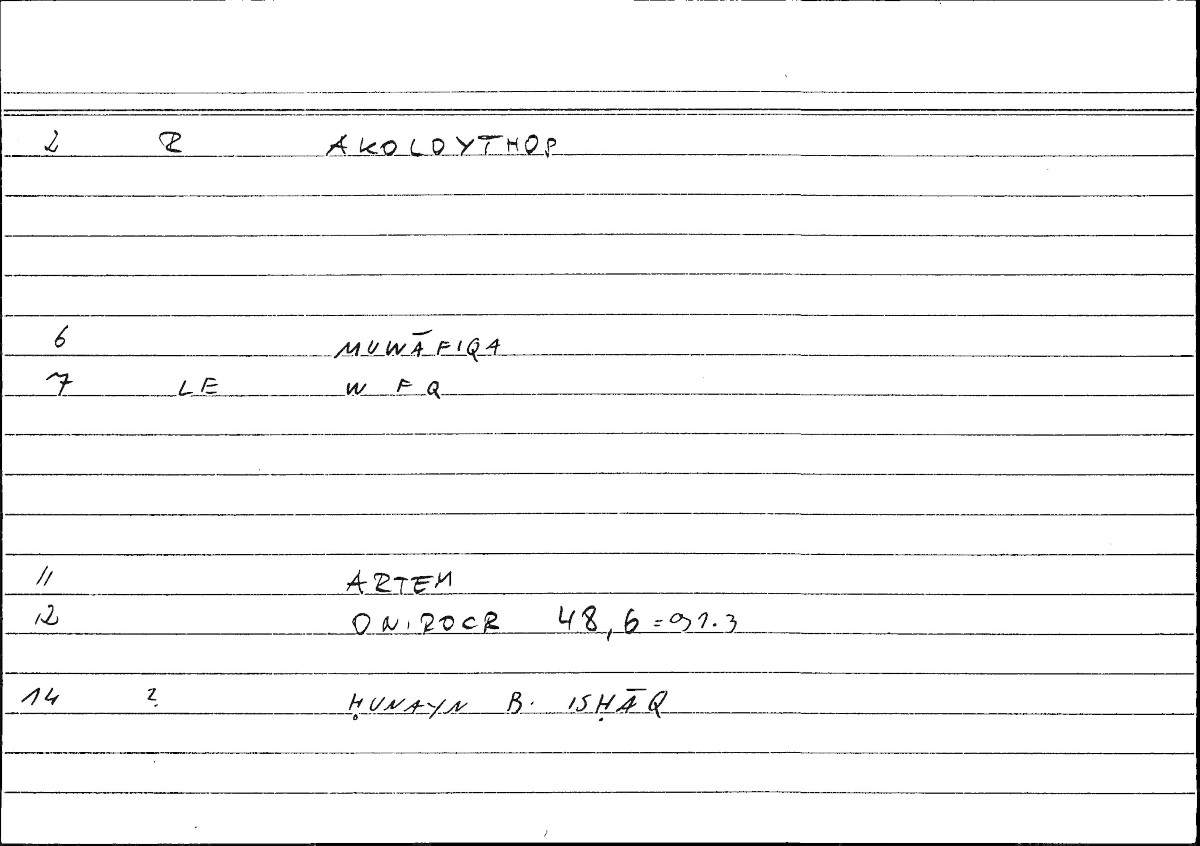 2 R AKOLOYTHOP
6 MUWĀFIQA
7 LE W F Q
11 ARTEM
12 ONIROCR 48,6=91.3
14 ? ḤUNAYN B. ISḤĀQ